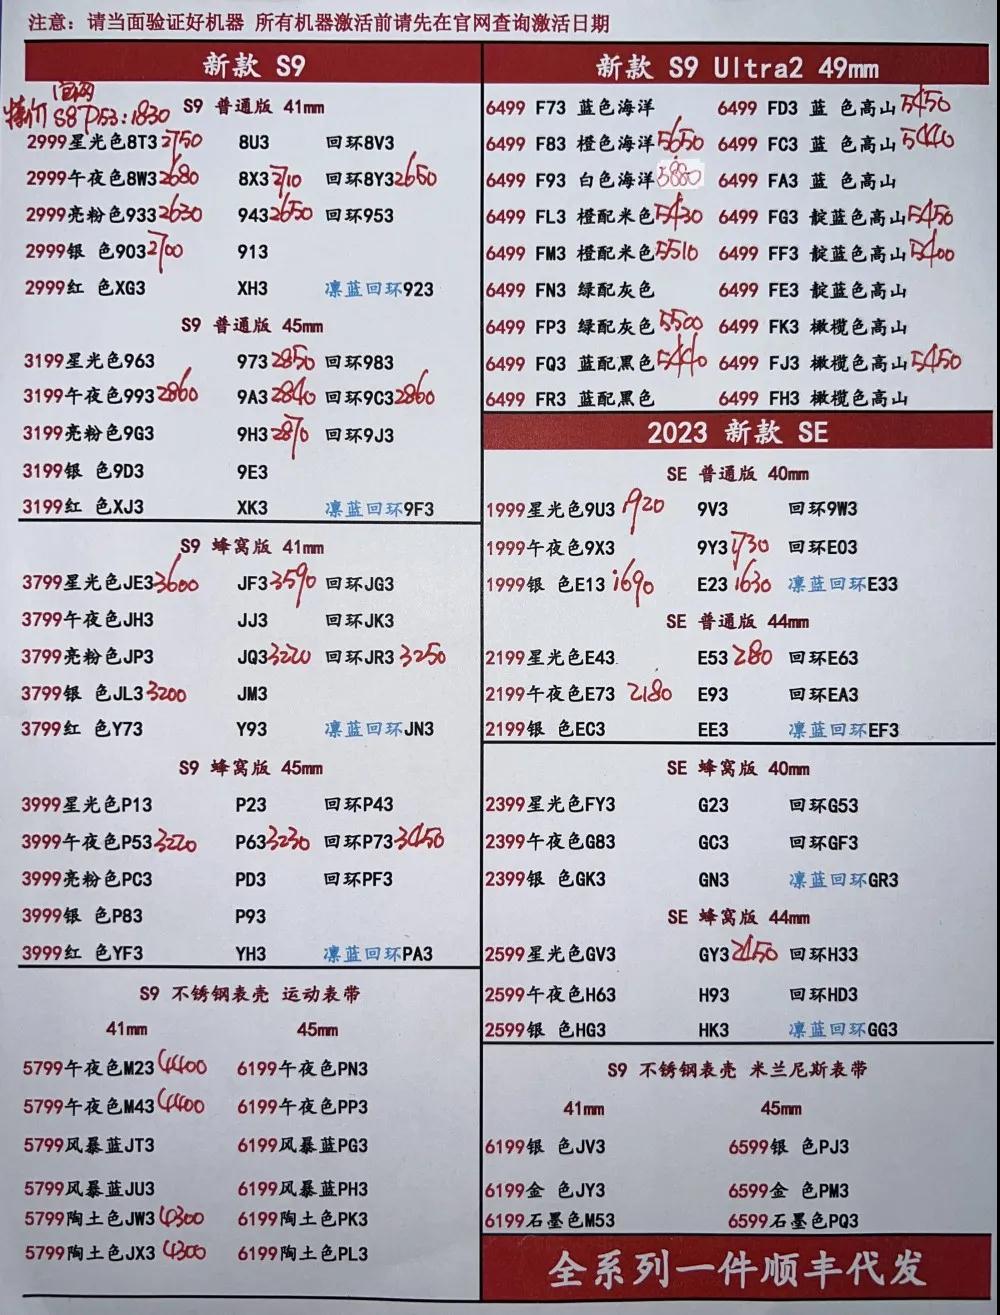 注意：请当面验证好机器 所有机器激活前请先在官网查询激活日期
新款 S9
官网
特价 S8 P53:1830
S9 普通版 41mm
2999星光色8T3 2750 8U3 回环8V3
2999午夜色8W3 2680 8X3 2710 回环8Y3 2650
2999亮粉色933 2630 943 2650 回环953
2999银 色903 2700 913
2999红 色XG3 XH3 凛蓝回环923
S9 普通版 45mm
3199星光色963 973 2850 回环983
3199午夜色993 2860 9A3 2840 回环9C3 2860
3199亮粉色9G3 9H3 2870 回环9J3
3199银 色9D3 9E3
3199红 色XJ3 XK3 凛蓝回环9F3
S9 蜂窝版 41mm
3799星光色JE3 3600 JF3 3590 回环JG3
3799午夜色JH3 JJ3 回环JK3
3799亮粉色JP3 JQ3 3220 回环JR3 3250
3799银 色JL3 3200 JM3
3799红 色Y73 Y93 凛蓝回环JN3
S9 蜂窝版 45mm
3999星光色P13 P23 回环P43
3999午夜色P53 3220 P63 3230 回环P73 3450
3999亮粉色PC3 PD3 回环PF3
3999银 色P83 P93
3999红 色YF3 YH3 凛蓝回环PA3
S9 不锈钢表壳 运动表带
41mm 45mm
5799午夜色M23 4400 6199午夜色PN3
5799午夜色M43 4400 6199午夜色PP3
5799风暴蓝JT3 6199风暴蓝PG3
5799风暴蓝JU3 6199风暴蓝PH3
5799陶土色JW3 4300 6199陶土色PK3
5799陶土色JX3 4300 6199陶土色PL3
新款 S9 Ultra2 49mm
6499 F73 蓝色海洋 6499 FD3 蓝 色高山 5450
6499 F83 橙色海洋 5650 6499 FC3 蓝 色高山 5440
6499 F93 白色海洋 5880 6499 FA3 蓝 色高山
6499 FL3 橙配米色 5430 6499 FG3 靛蓝色高山 5450
6499 FM3 橙配米色 5510 6499 FF3 靛蓝色高山 5400
6499 FN3 绿配灰色 6499 FE3 靛蓝色高山
6499 FP3 绿配灰色 5500 6499 FK3 橄榄色高山
6499 FQ3 蓝配黑色 5440 6499 FJ3 橄榄色高山 5450
6499 FR3 蓝配黑色 6499 FH3 橄榄色高山
2023 新款 SE
SE 普通版 40mm
1999星光色9U3 1920 9V3 回环9W3
1999午夜色9X3 9Y3 1730 回环E03
1999银 色E13 1690 E23 1630 凛蓝回环E33
SE 普通版 44mm
2199星光色E43 E53 2280 回环E63
2199午夜色E73 2180 E93 回环EA3
2199银 色EC3 EE3 凛蓝回环EF3
SE 蜂窝版 40mm
2399星光色FY3 G23 回环G53
2399午夜色G83 GC3 回环GF3
2399银 色GK3 GN3 凛蓝回环GR3
SE 蜂窝版 44mm
2599星光色GV3 GY3 2450 回环H33
2599午夜色H63 H93 回环HD3
2599银 色HG3 HK3 凛蓝回环GG3
S9 不锈钢表壳 米兰尼斯表带
41mm 45mm
6199银 色JV3 6599银 色PJ3
6199金 色JY3 6599金 色PM3
6199石墨色M53 6599石墨色PQ3
全系列一件顺丰代发